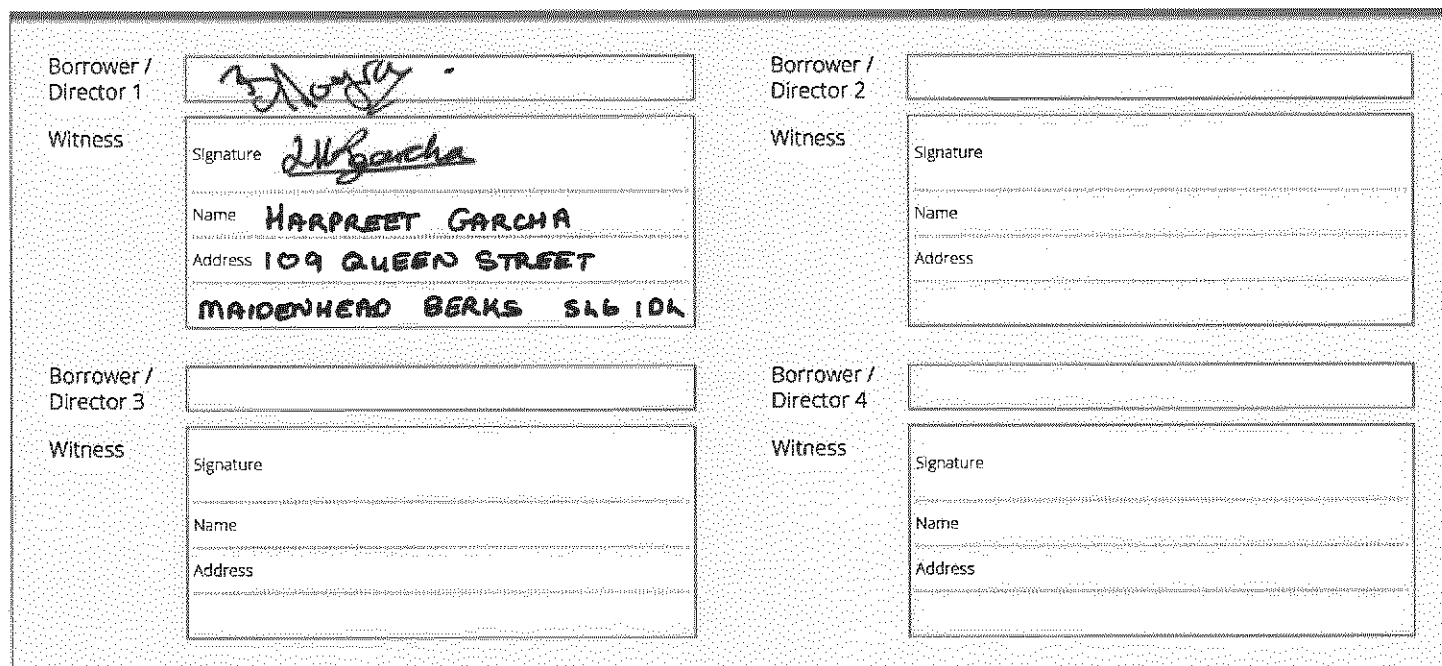 Borrower /
Director 1
Witness
Signature
Name HARPREET GARCHA
Address 109 QUEEN STREET
MAIDENHEAD BERKS SL6 1DL
Borrower /
Director 2
Witness
Signature
Name
Address
Borrower /
Director 3
Witness
Signature
Name
Address
Borrower /
Director 4
Witness
Signature
Name
Address